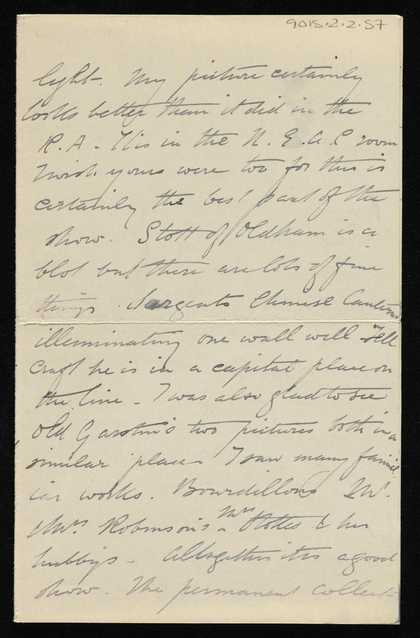 9015.2.2.57
light. My picture certainly
looks better than it did in the
R.A. - Tis in the N.E.A.C room
I wish yours were too for this is
certainly the best part of the
show. Stott of Oldham is a
blot but there are lots of fine
things. Sargents Chinese Lanterns
illuminating one wall well - Tell
Craft he is in a capital place on
the line - I was also glad to see
Old Garstin's two pictures both in a
similar place - I saw many famil
iar works. Bourdillons Mr.
& Mrs Robinson's - Mrs Stokes & her
hubby's - Altogether it is a good
show. The permanent collect